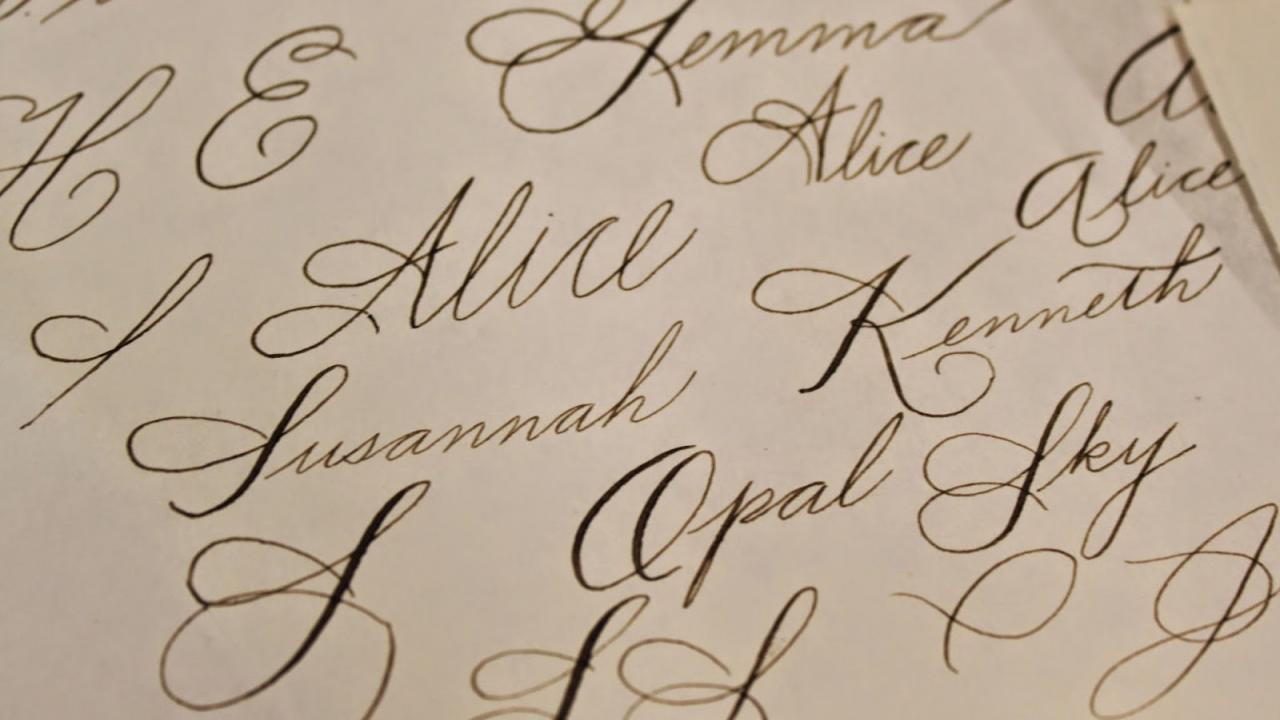 Gemma
H E Alice A
Alice Alice
Kenneth
S
Susannah
Opal Sky
S
S S J